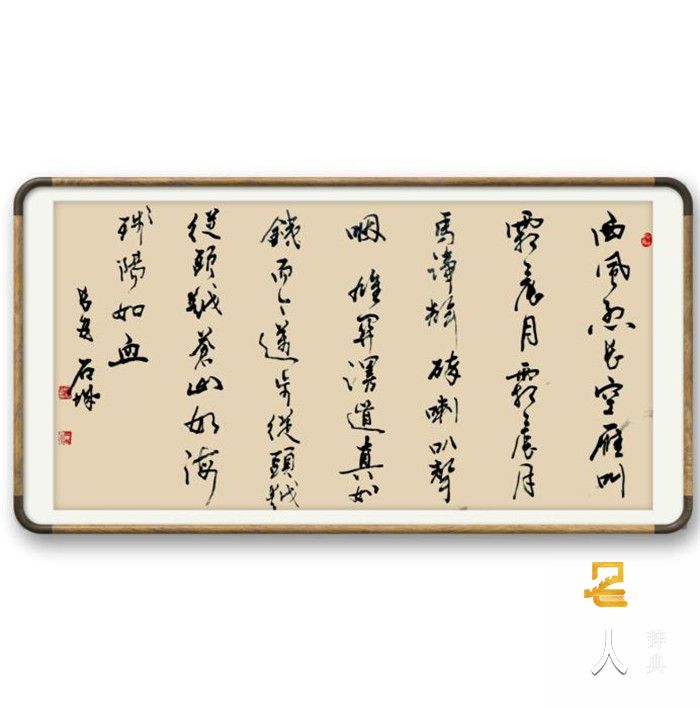 西風烈长空雁叫
霜晨月霜晨月
馬蹄聲碎喇叭聲
咽雄關漫道真如
鐵而今邁步從頭越
從頭越蒼山如海
殘陽如血
石
名人
辞典